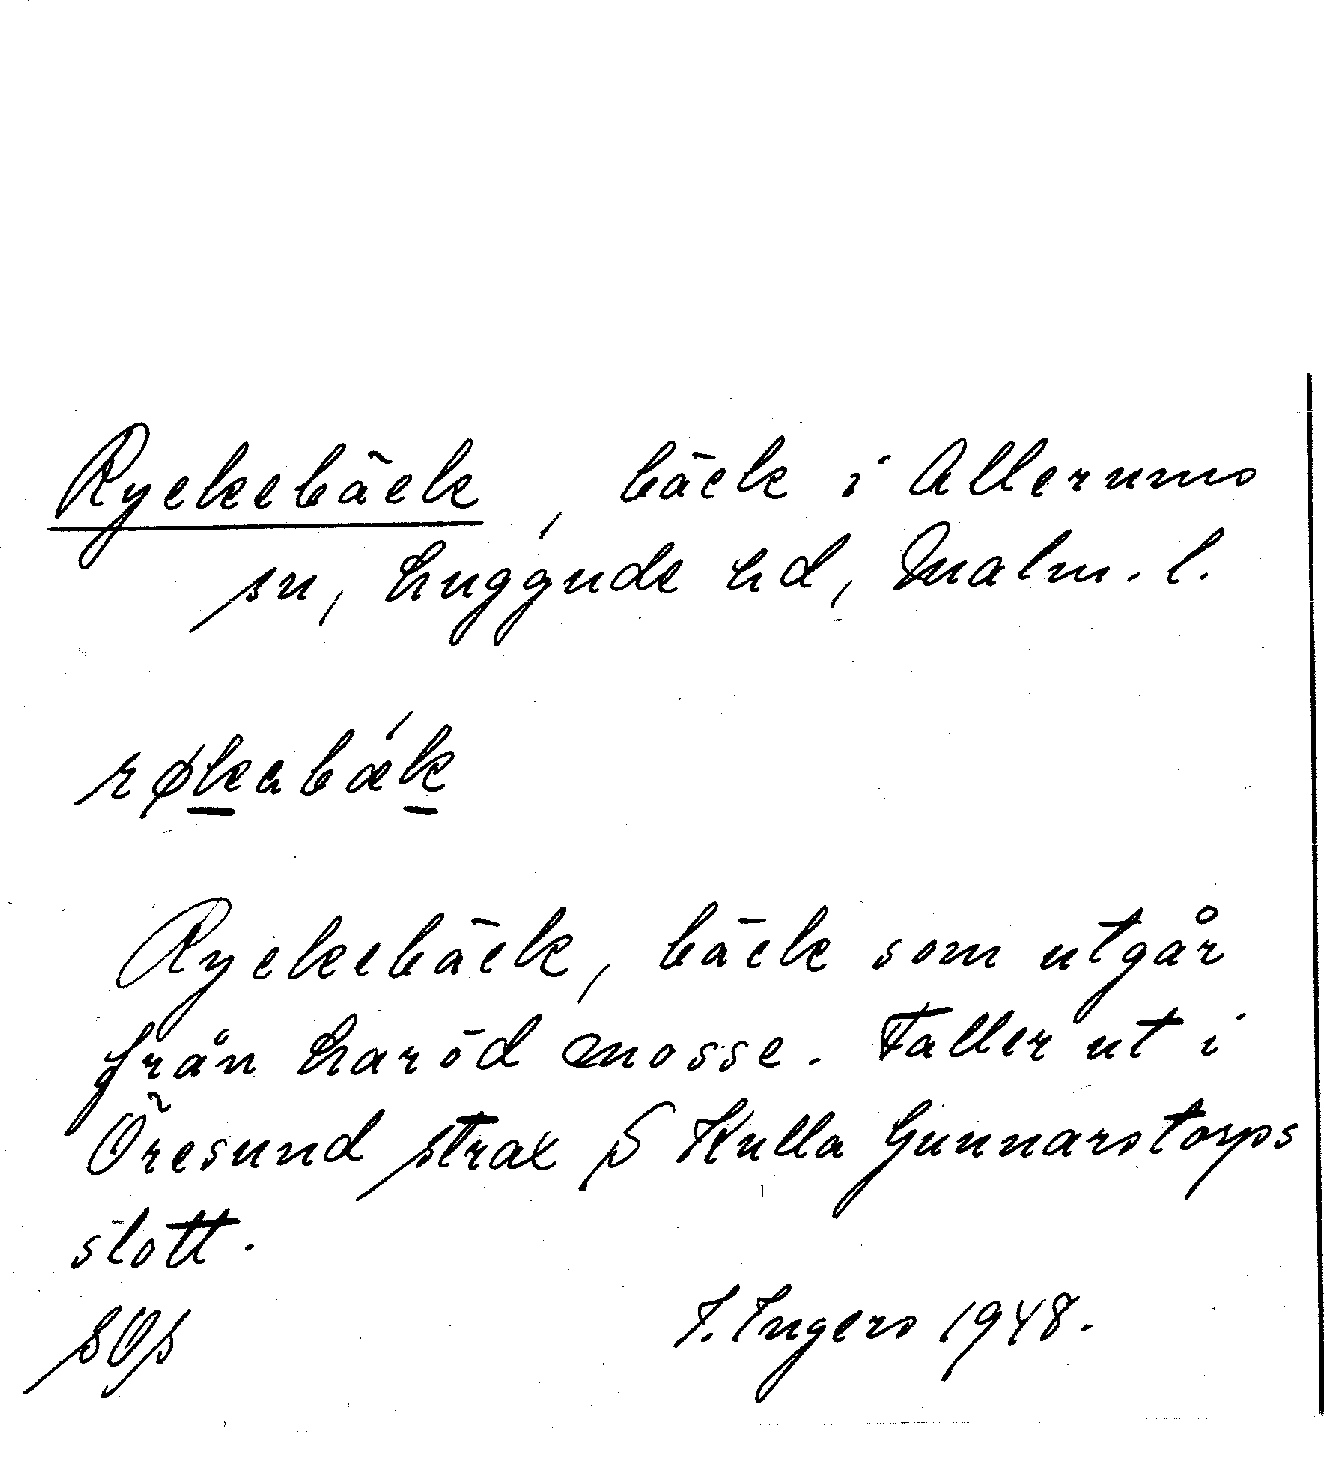 Ryckebäck, bäck i Allerums
sn, Luggude hd, Malm. l.
røkabæ´k
Ryckebäck, bäck som utgår
från Laröd mosse. Faller ut i
Öresund strax S Kulla Gunnarstorps
slott.
I. Ingers 1948.